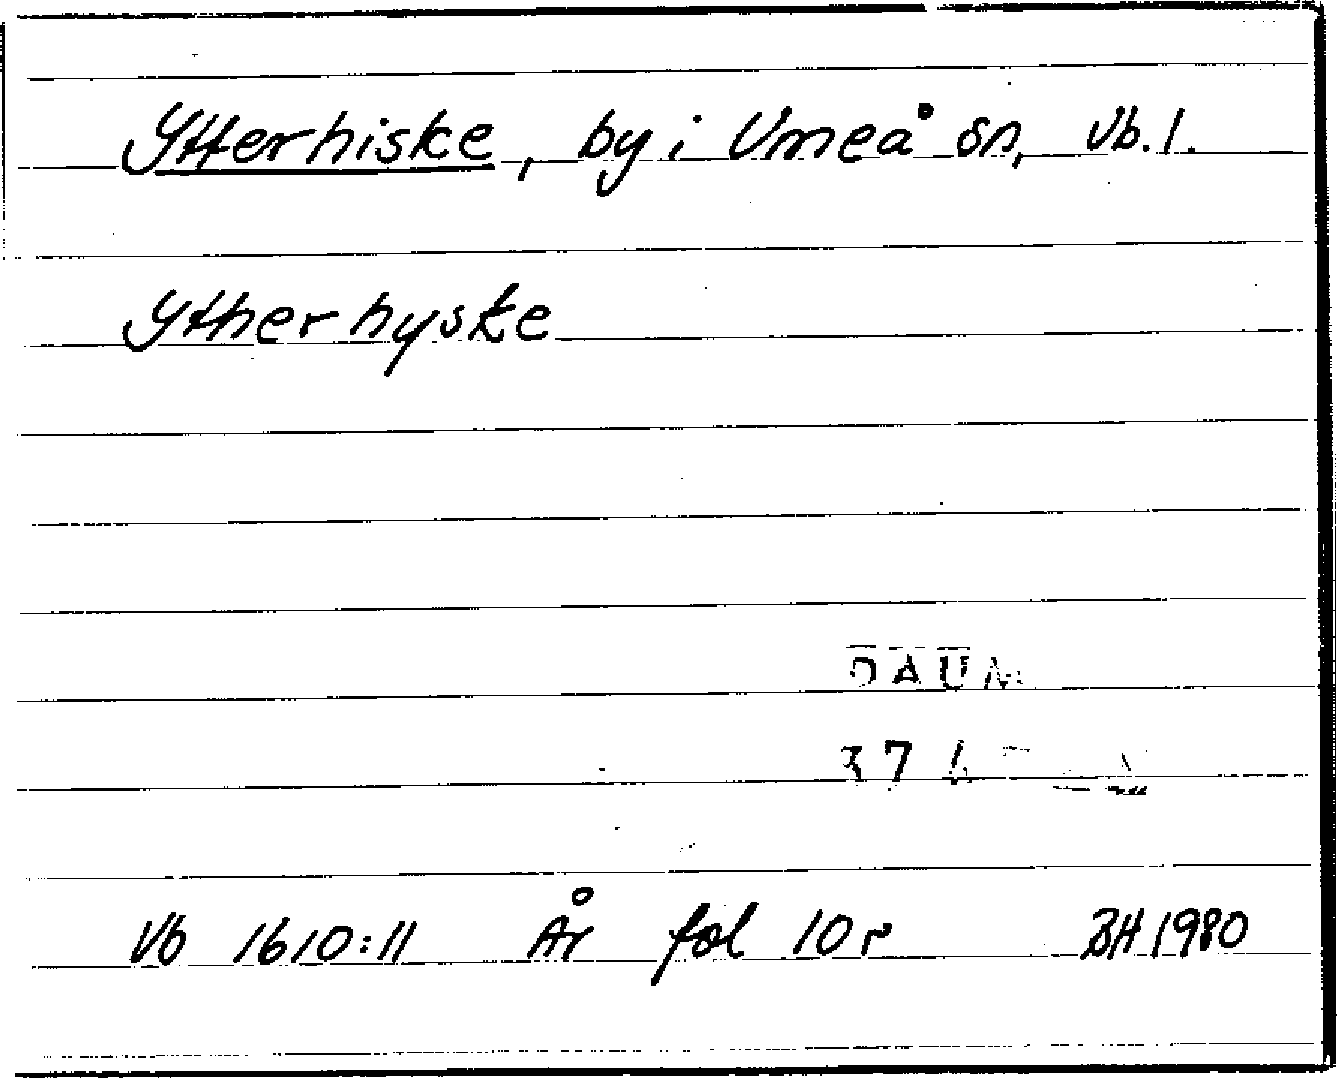 Ytterhiske, by i Umeå sn, Vb. l.
Ytherhyske
DAUM
Vb 1610:11 År fol 10 r BH 1980